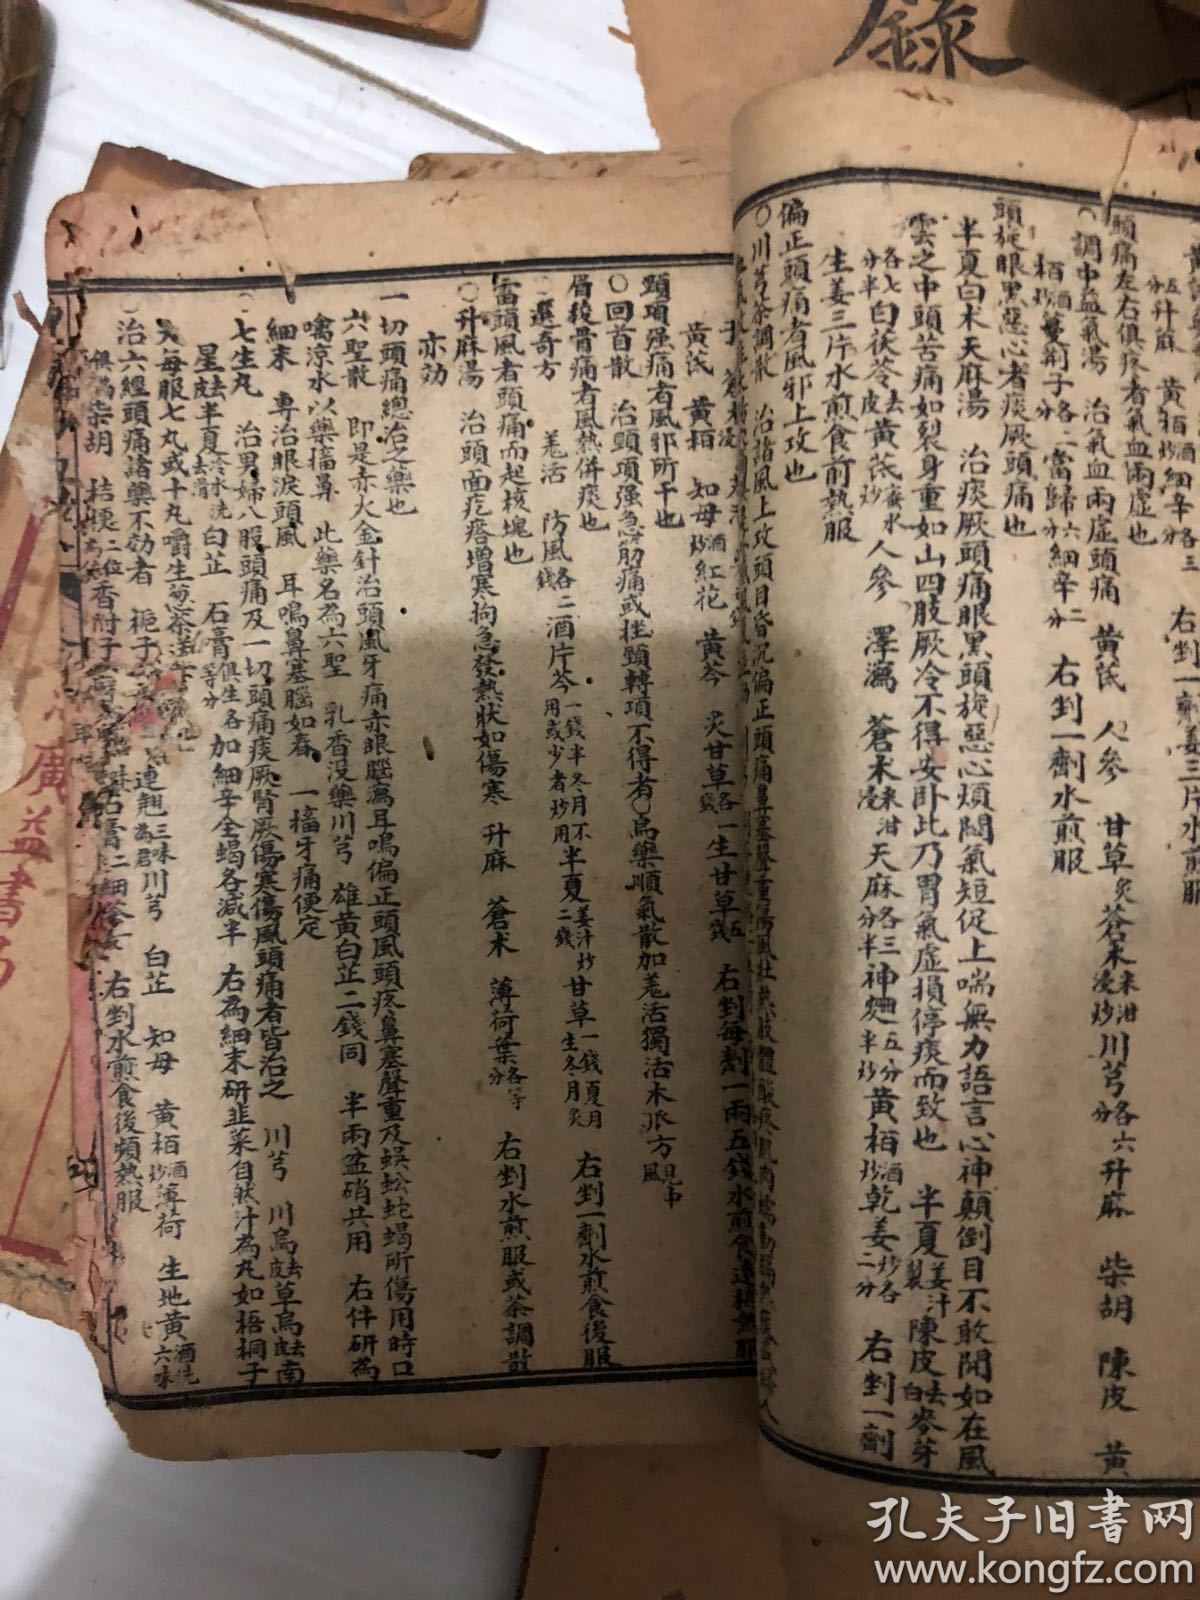 錄
五分升麻 黃栢酒炒細辛各三分 右剉一劑姜三片水煎服
頭痛左右俱疼者氣血兩虛也
○調中益氣湯 治氣血兩虛頭痛 黃芪 人參 甘草炙蒼朮米泔浸炒川芎各六分升麻 柴胡 陳皮 黃
栢酒炒蔓荊子各三分當歸六分細辛二分 右剉一劑水煎服
頭旋眼黑惡心者痰厥頭痛也
半夏白朮天麻湯 治痰厥頭痛眼黑頭旋惡心煩悶氣短促上喘無力語言心神顛倒目不敢開如在風
雲之中頭苦痛如裂身重如山四肢厥冷不得安臥此乃胃氣虛損停痰而致也 半夏姜汁製陳皮去白麥芽
各七分半白茯苓去皮黃芪蜜水炒人參 澤瀉 蒼朮米泔浸天麻各三分半神麯五分炒黃栢酒炒乾姜炒各二分 右剉一劑
生姜三片水煎食前熱服
偏正頭痛者風邪上攻也
○川芎茶調散 治諸風上攻頭目昏沉偏正頭痛鼻塞聲重傷風壯熱肢體酸疼肌肉
黃芪 黃栢 知母酒炒紅花 黃芩 炙甘草各一錢生甘草五錢 右剉每劑一兩五錢水煎食遠稍熱服
頸項强痛者風邪所干也
○回首散 治頸項强急筋痛或挫頸轉項不得者○烏藥順氣散加羗活獨活木瓜方見中風
眉稜骨痛者風熱併痰也
○選奇方 羗活 防風各二錢酒片芩一錢半冬月不用或少者炒用半夏姜汁炒二錢甘草一錢夏月生冬月炙 右剉一劑水煎食後服
雷頭風者頭痛而起核塊也
○升麻湯 治頭面疙瘩增寒拘急發熱狀如傷寒 升麻 蒼朮 薄荷葉各等分 右剉水煎服或茶調散
亦効
一切頭痛總治之藥也
六聖散 即是赤火金針治頭風牙痛赤眼腦瀉耳鳴偏正頭風頭疼鼻塞聲重及蜈蚣蛇蝎所傷用時口
噙涼水以藥搐鼻 此藥名為六聖 乳香沒藥川芎 雄黃白芷二錢同 半兩盆硝共用 右件研為
細末 專治眼淚頭風 耳鳴鼻塞腦如春 一搐牙痛便定
○七生丸 治男婦八股頭痛及一切頭痛痰厥腎厥傷寒傷風頭痛者皆治之 川芎 川烏去皮草烏去皮南
星去皮半夏冷水洗去滑白芷 石膏俱生各等分加細辛全蝎各減半 右為細末研韭菜自然汁為丸如梧桐子
大每服七丸或十丸嚼生葱茶送下
○治六經頭痛諸藥不効者 梔子 連翹三味為君川芎 白芷 知母 黃栢酒炒薄荷 生地黃酒洗六味
俱為 柴胡 桔梗二位為 香附子 石膏二 細茶 右剉水煎食後頻熱服
廣益書局
孔夫子旧书网
www.kongfz.com